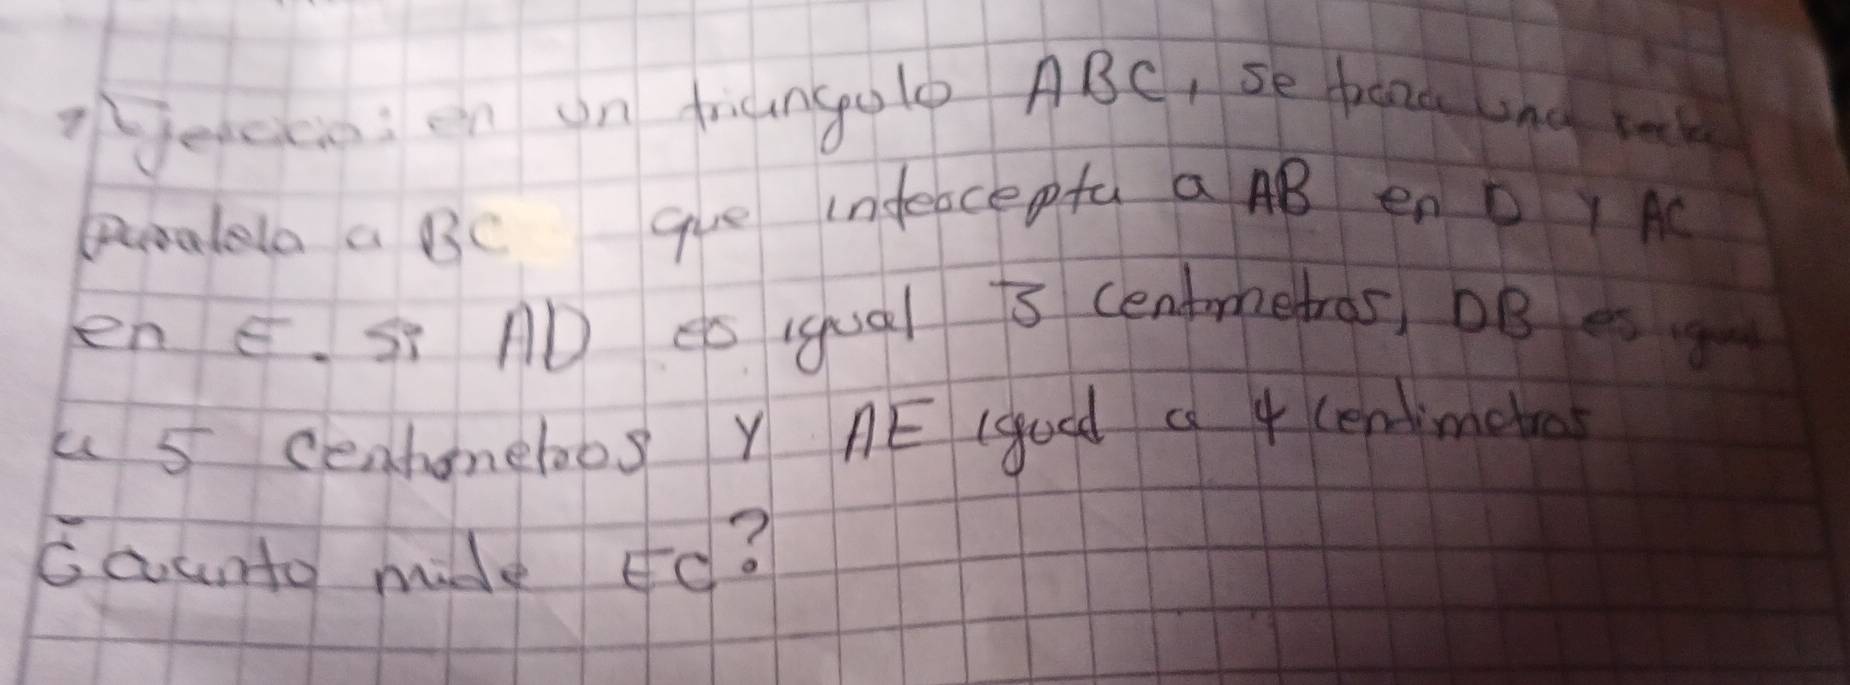 Ejercicio: en un triangulo ABC, se traza una recta
paralela a BC que intercepta a AB en D y AC
en E. Si AD es igual 3 centimetros, DB es igual
a 5 centimetros y AE igual a 4 centimetros
¿Cuanto mide EC?